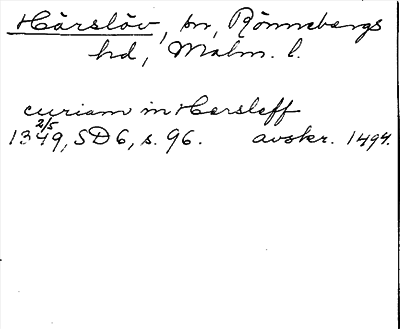 Härslöv, sn, Rönnebergs
hd, Malm. l.
curiam in Hersleff
2/5
1349, SD 6, s. 96. avskr. 1494.